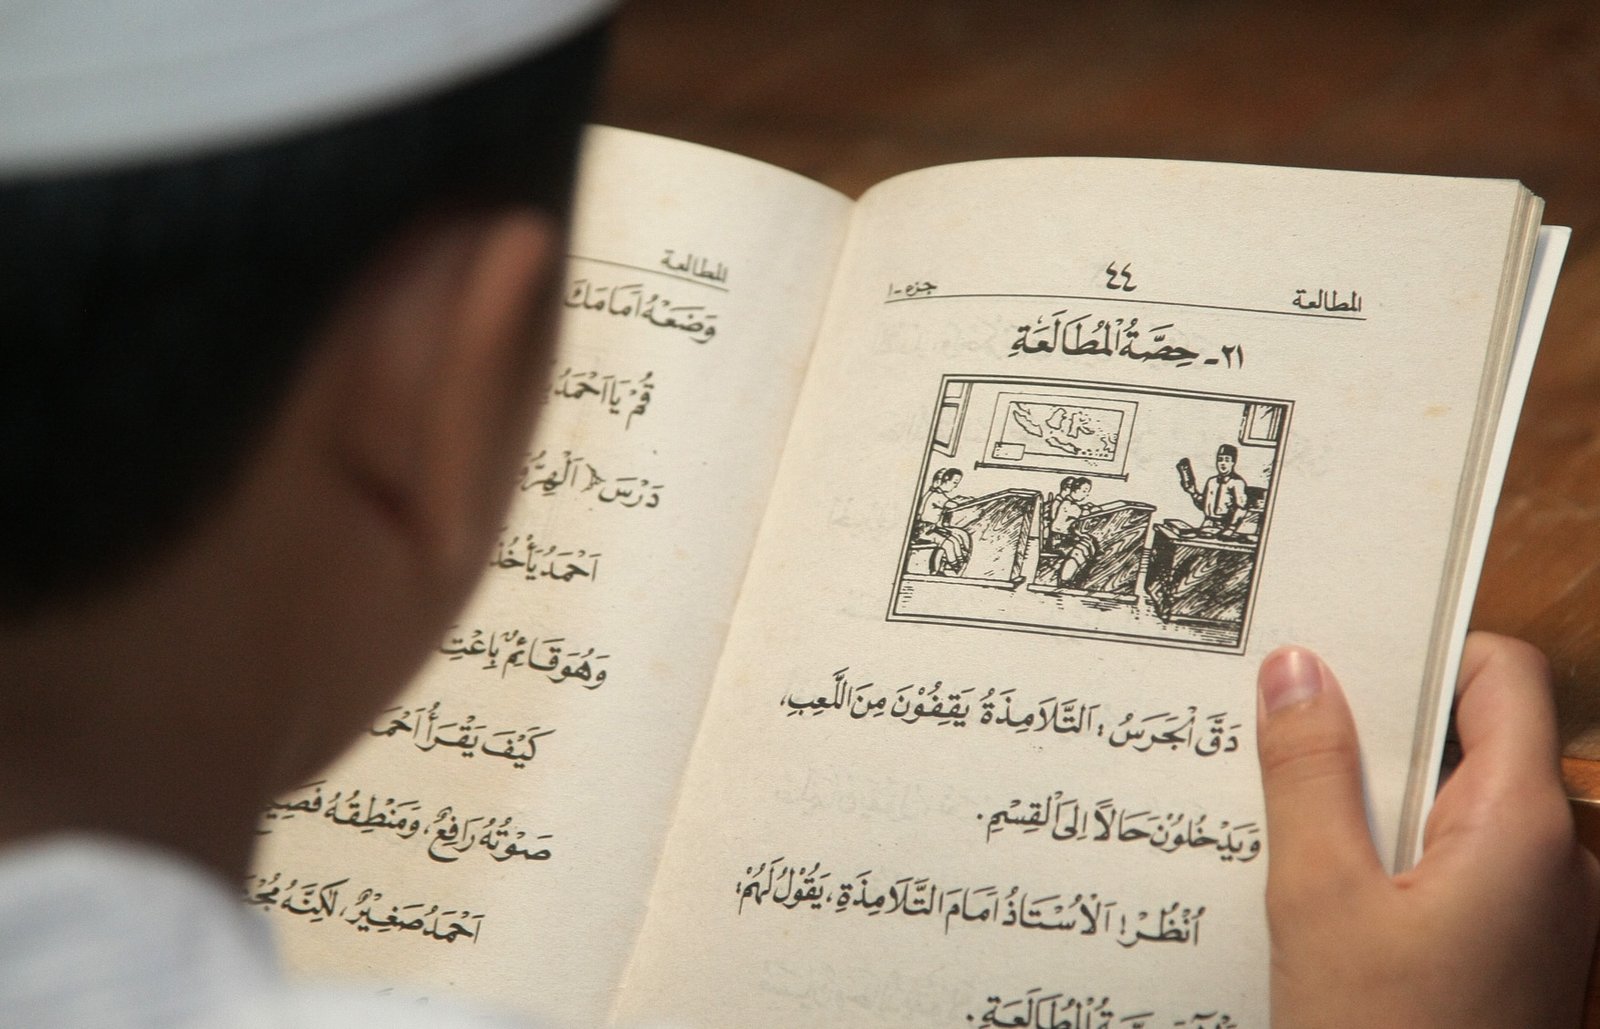 المطالعة ٤٤ جزء-١
٢١- حِصَّةُ الْمُطَالَعَةِ
دَقَّ الْجَرَسُ : اَلتَّلَامِذَةُ يَقِفُوْنَ مِنَ اللَّعِبِ،
وَيَدْخُلُوْنَ حَالاً اِلَى الْقِسْمِ.
اُنْظُرْ! اَلْاُسْتَاذُ اَمَامَ التَّلَامِذَةِ، يَقُوْلُ لَهُمْ:
الْمُطَالَعَةِ.
المطالعة
وَضَعْهُ اَمَامَكَ
قُمْ يَا اَحْمَدُ
دَرْسَ ﴿ اَلْهِرُّ
اَحْمَدُ يَأْخُذُ
وَهُوَ قَائِمٌ
كَيْفَ يَقْرَأُ
صَوْتُهُ رَافِعٌ، وَمَنْطِقُهُ
اَحْمَدُ صَغِيْرٌ، لَكِنَّهُ